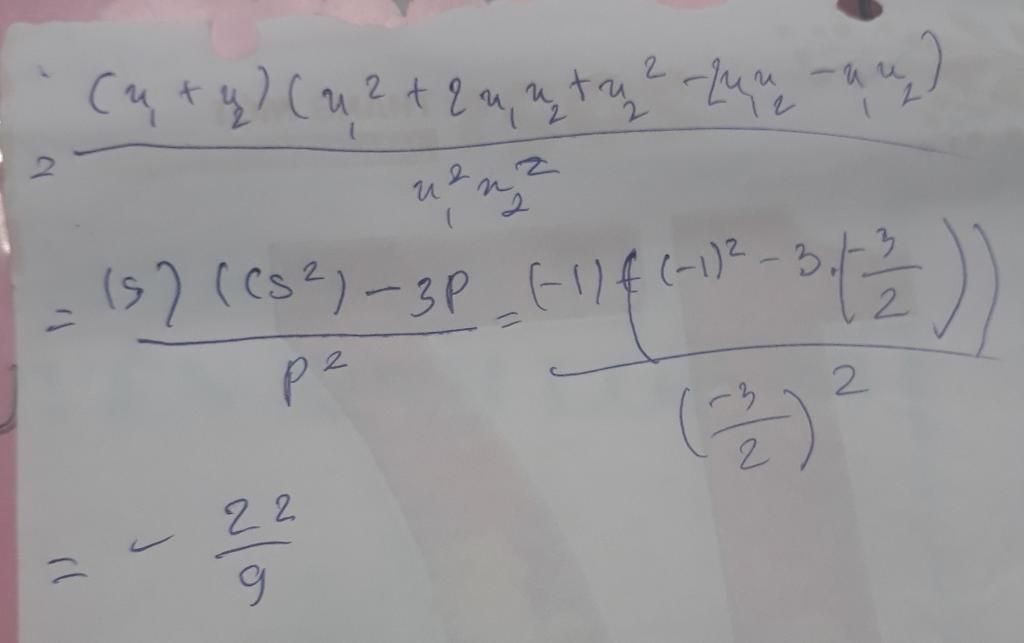 = (x₁ + x₂)(x₁² + 2x₁x₂ + x₂² - 2x₁x₂ - x₁x₂) / x₁²x₂²
= (S)((S²) - 3P / P² = (-1)((-1)² - 3.(-3/2))) / (-3/2)²
= - 22/9